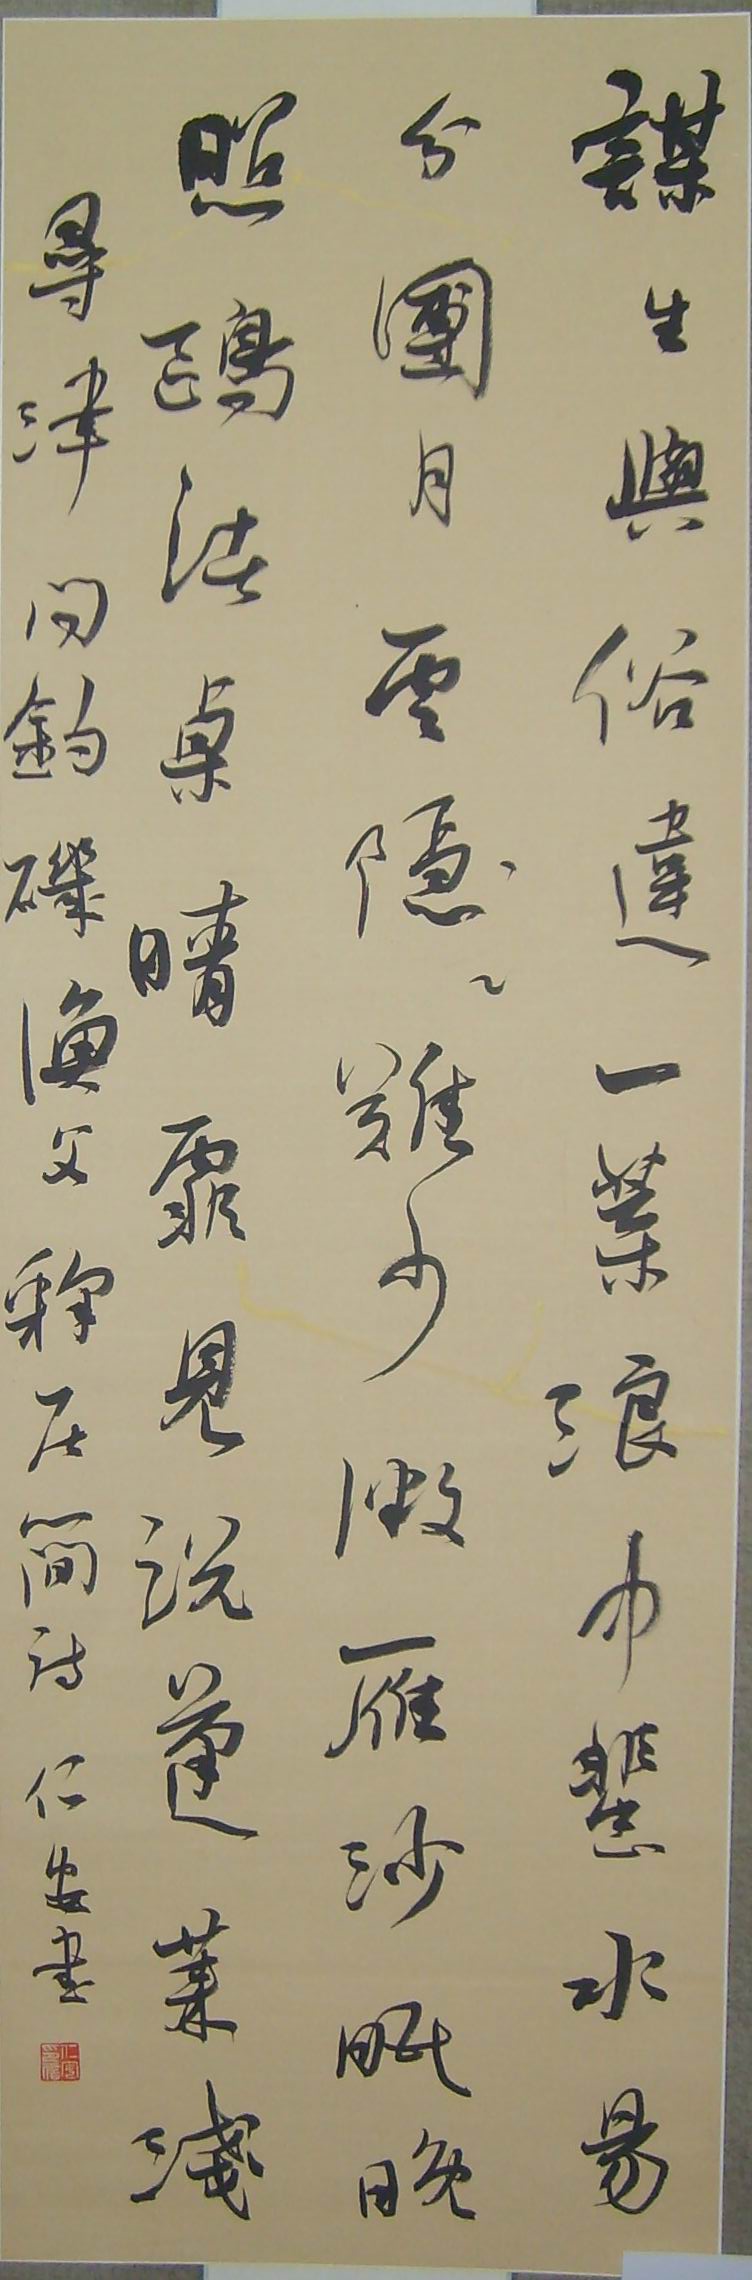 謀生與俗違一葉浪中蜚水易
分團月雲隱難少微雁沙眠晚
照鷗桌晴霏見說蓬萊淺
尋津問釣磯 漁父 釋居簡詩 仁安書